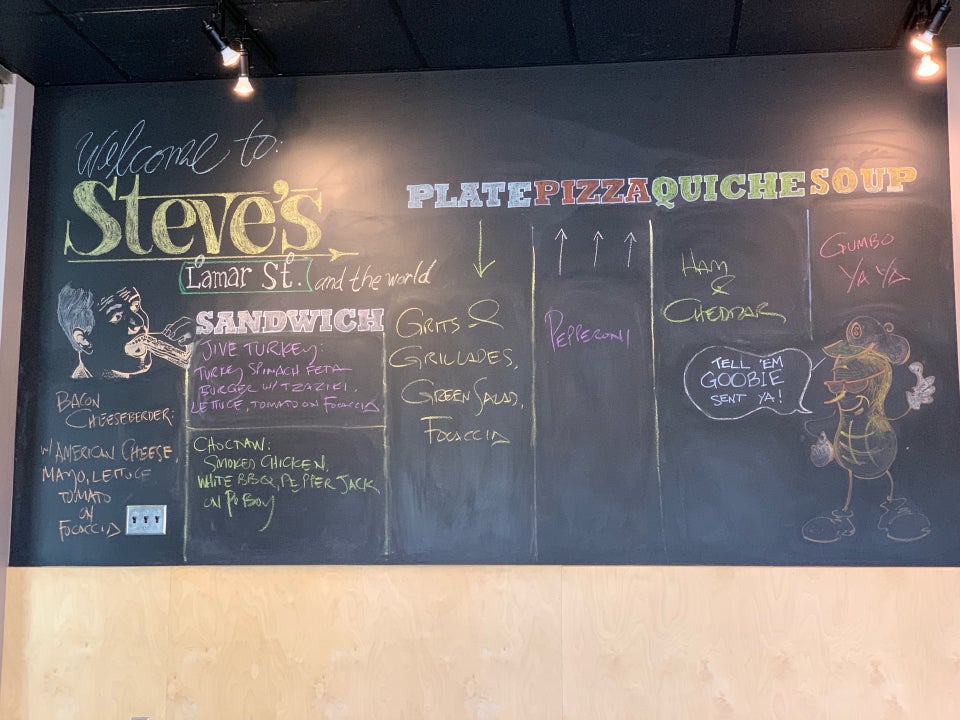 Welcome to:
Steve's
Lamar St. and the world
BACON
CHEESEBERDER:
W/AMERICAN CHEESE,
MAYO, LETTUCE
TOMATO
ON
FOCACCIA
SANDWICH
JIVE TURKEY:
TURKEY SPINACH FETA
BURGER W/TZAZIKI,
LETTUCE, TOMATO ON FOCACCIA
CHOCTAW:
SMOKED CHICKEN,
WHITE BBQ, PEPPER JACK
ON PO BOY
PLATE
GRITS &
GRILLADES,
GREEN SALAD,
FOCACCIA
PIZZA
PEPPERONI
QUICHE
HAM
&
CHEDDAR
SOUP
GUMBO
YA YA
TELL 'EM
GOOBIE
SENT YA!